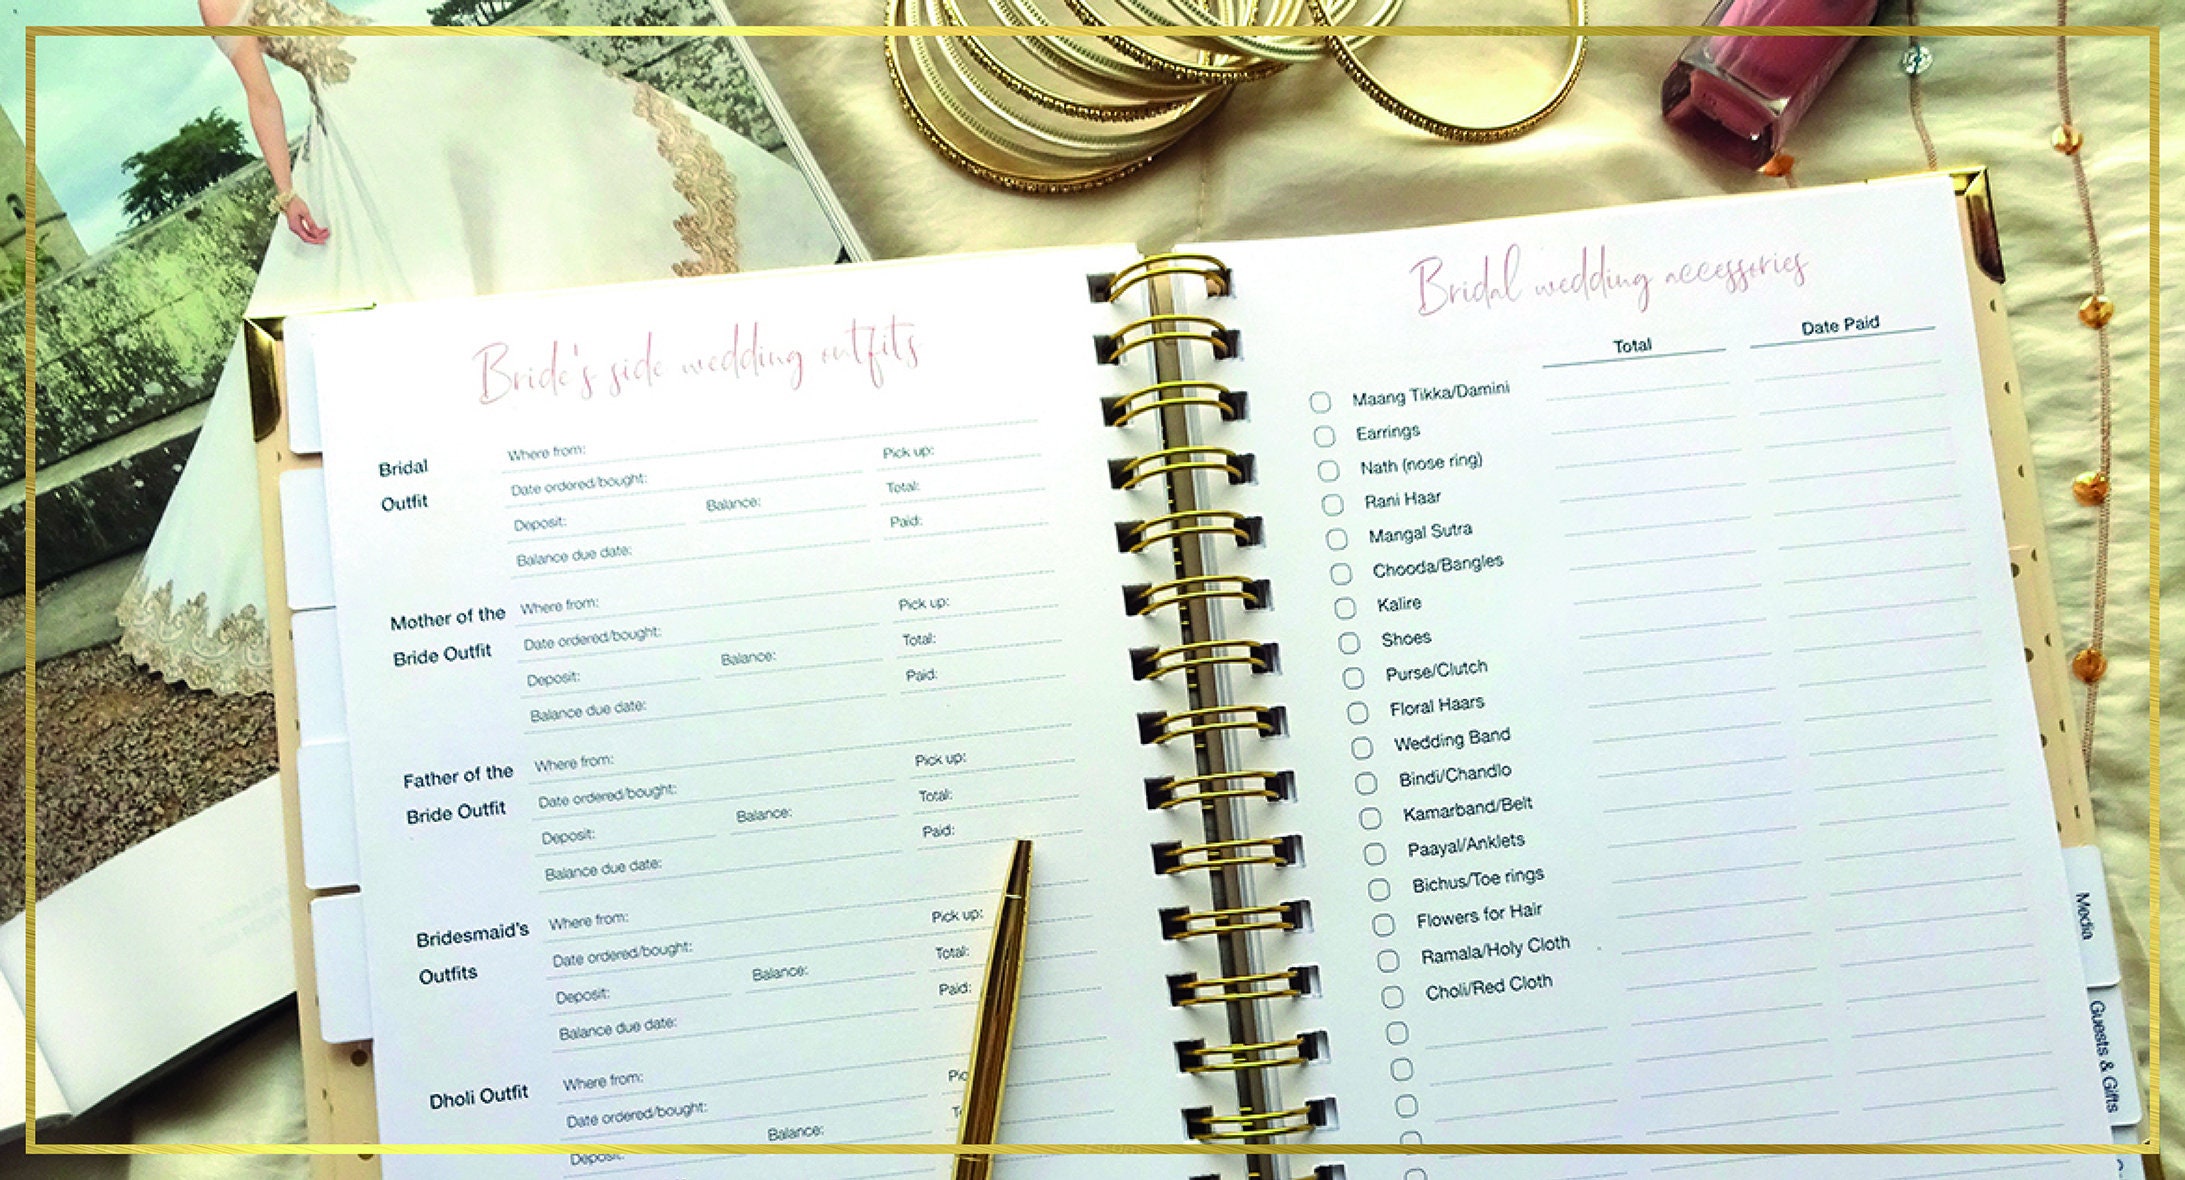 Bride's side wedding outfits
Bridal
Outfit
Where from:
Date ordered/bought:
Pick up:
Deposit:
Balance:
Total:
Balance due date:
Paid:
Mother of the
Bride Outfit
Where from:
Date ordered/bought:
Pick up:
Deposit:
Balance:
Total:
Balance due date:
Paid:
Father of the
Bride Outfit
Where from:
Date ordered/bought:
Pick up:
Deposit:
Balance:
Total:
Balance due date:
Paid:
Bridesmaid's
Outfits
Where from:
Date ordered/bought:
Pick up:
Deposit:
Balance:
Total:
Balance due date:
Paid:
Dholi Outfit
Where from:
Date ordered/bought:
Balance:
Bridal wedding accessories
Total Date Paid
Maang Tikka/Damini
Earrings
Nath (nose ring)
Rani Haar
Mangal Sutra
Chooda/Bangles
Kalire
Shoes
Purse/Clutch
Floral Haars
Wedding Band
Bindi/Chandlo
Kamarband/Belt
Paayal/Anklets
Bichus/Toe rings
Flowers for Hair
Ramala/Holy Cloth
Choli/Red Cloth
Media
Guests & Gifts